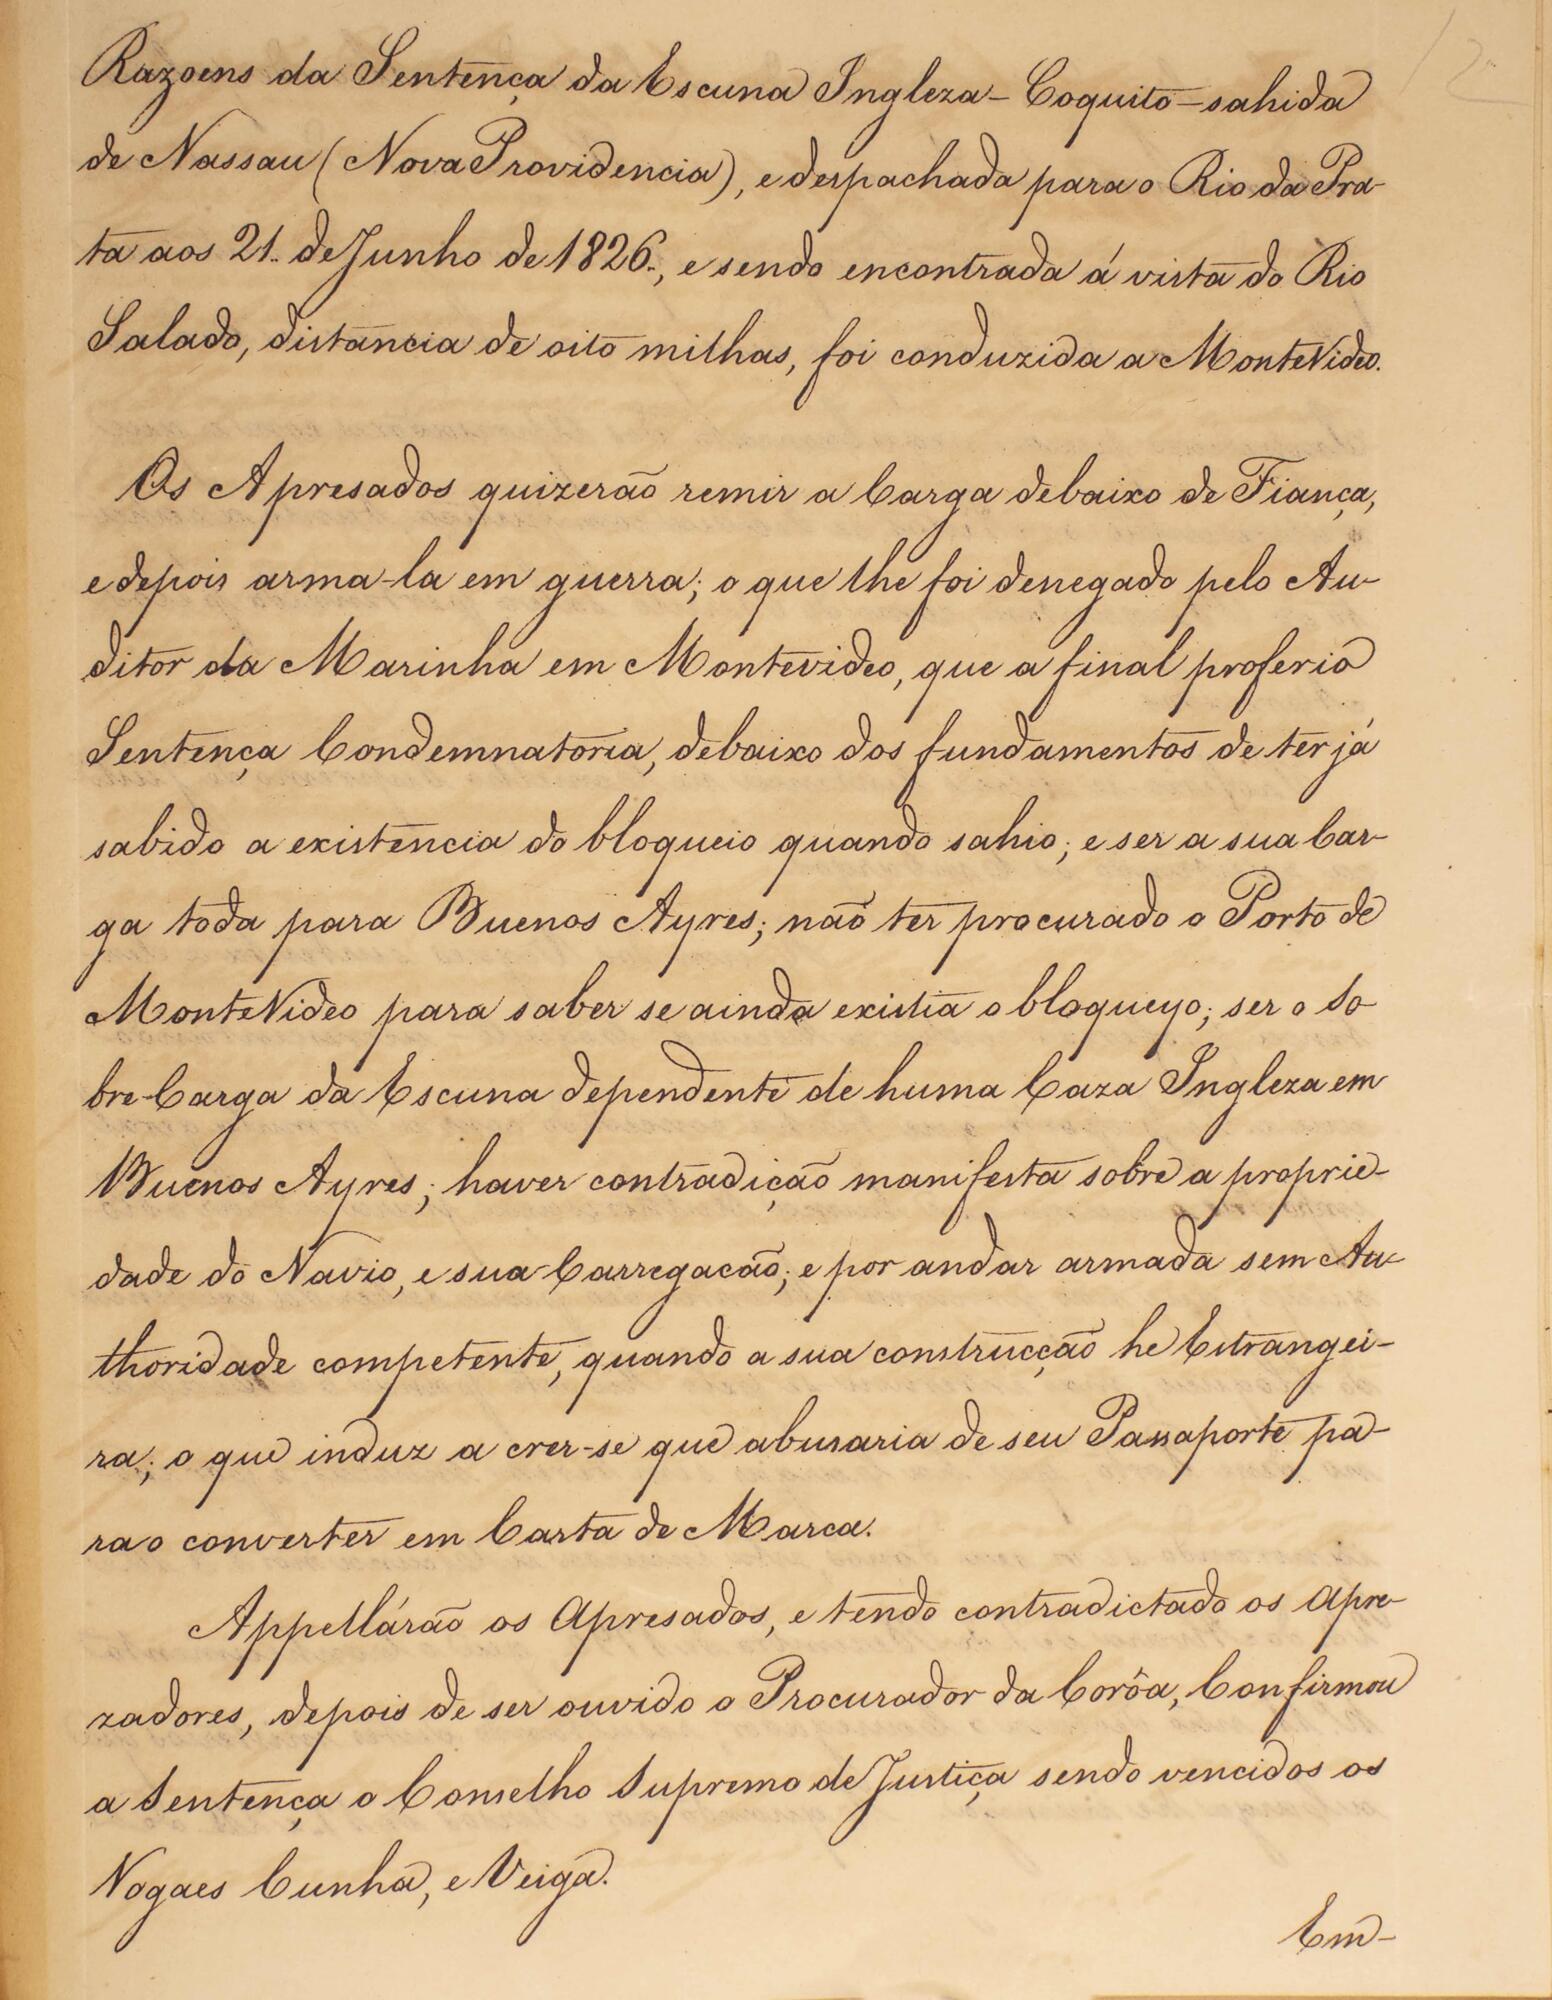 12
Razoens da Sentença da Escuna Ingleza – Coquito – sahida
de Nassau (Nova Providencia), e despachada para o Rio da Pra-
ta aos 21. de Junho de 1826., e sendo encontrada á vista do Rio
Salado, distancia de oito milhas, foi conduzida a MonteVideo.
Os Apresados quizerão remir a Carga debaixo de Fiança,
e depois arma-la em guerra; o que lhe foi denegado pelo Au-
ditor da Marinha em Montevideo, que a final proferio
Sentença Condemnatoria, debaixo dos fundamentos de ter já
sabido a existencia do bloqueio quando sahio; e ser a sua Car-
ga toda para Buenos Ayres; não ter procurado o Porto de
MonteVideo para saber se ainda existia o bloqueyo; ser o So-
bre-Carga da Escuna dependente de huma Caza Ingleza em
Buenos Ayres; haver contradição manifesta sobre a proprie-
dade do Navio, e sua Carregacão; e por andar armada sem Au-
thoridade competente, quando a sua construcção he Estrangei-
ra; o que induz a crer-se que abusaria de seu Passaporte pa-
ra o converter em Carta de Marca.
Appellárão os Apresados, e tendo contradictado os Apre-
zadores, depois de ser ouvido o Procurador da Corôa, Confirmou
a Sentença o Conselho Supremo de Justiça sendo vencidos os
Nogaes Cunha, e Veiga.
Em-